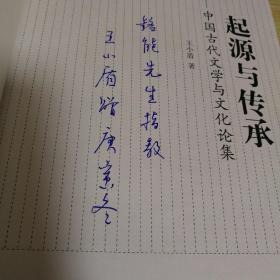 起源与传承
中国古代文学与文化论集
王小盾 著
先生指教
王小盾赠 庚寅冬